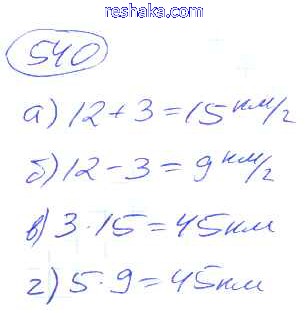 reshaka.com
540
а) 12 + 3 = 15 км/г
б) 12 - 3 = 9 км/г
в) 3 · 15 = 45 км
г) 5 · 9 = 45 км